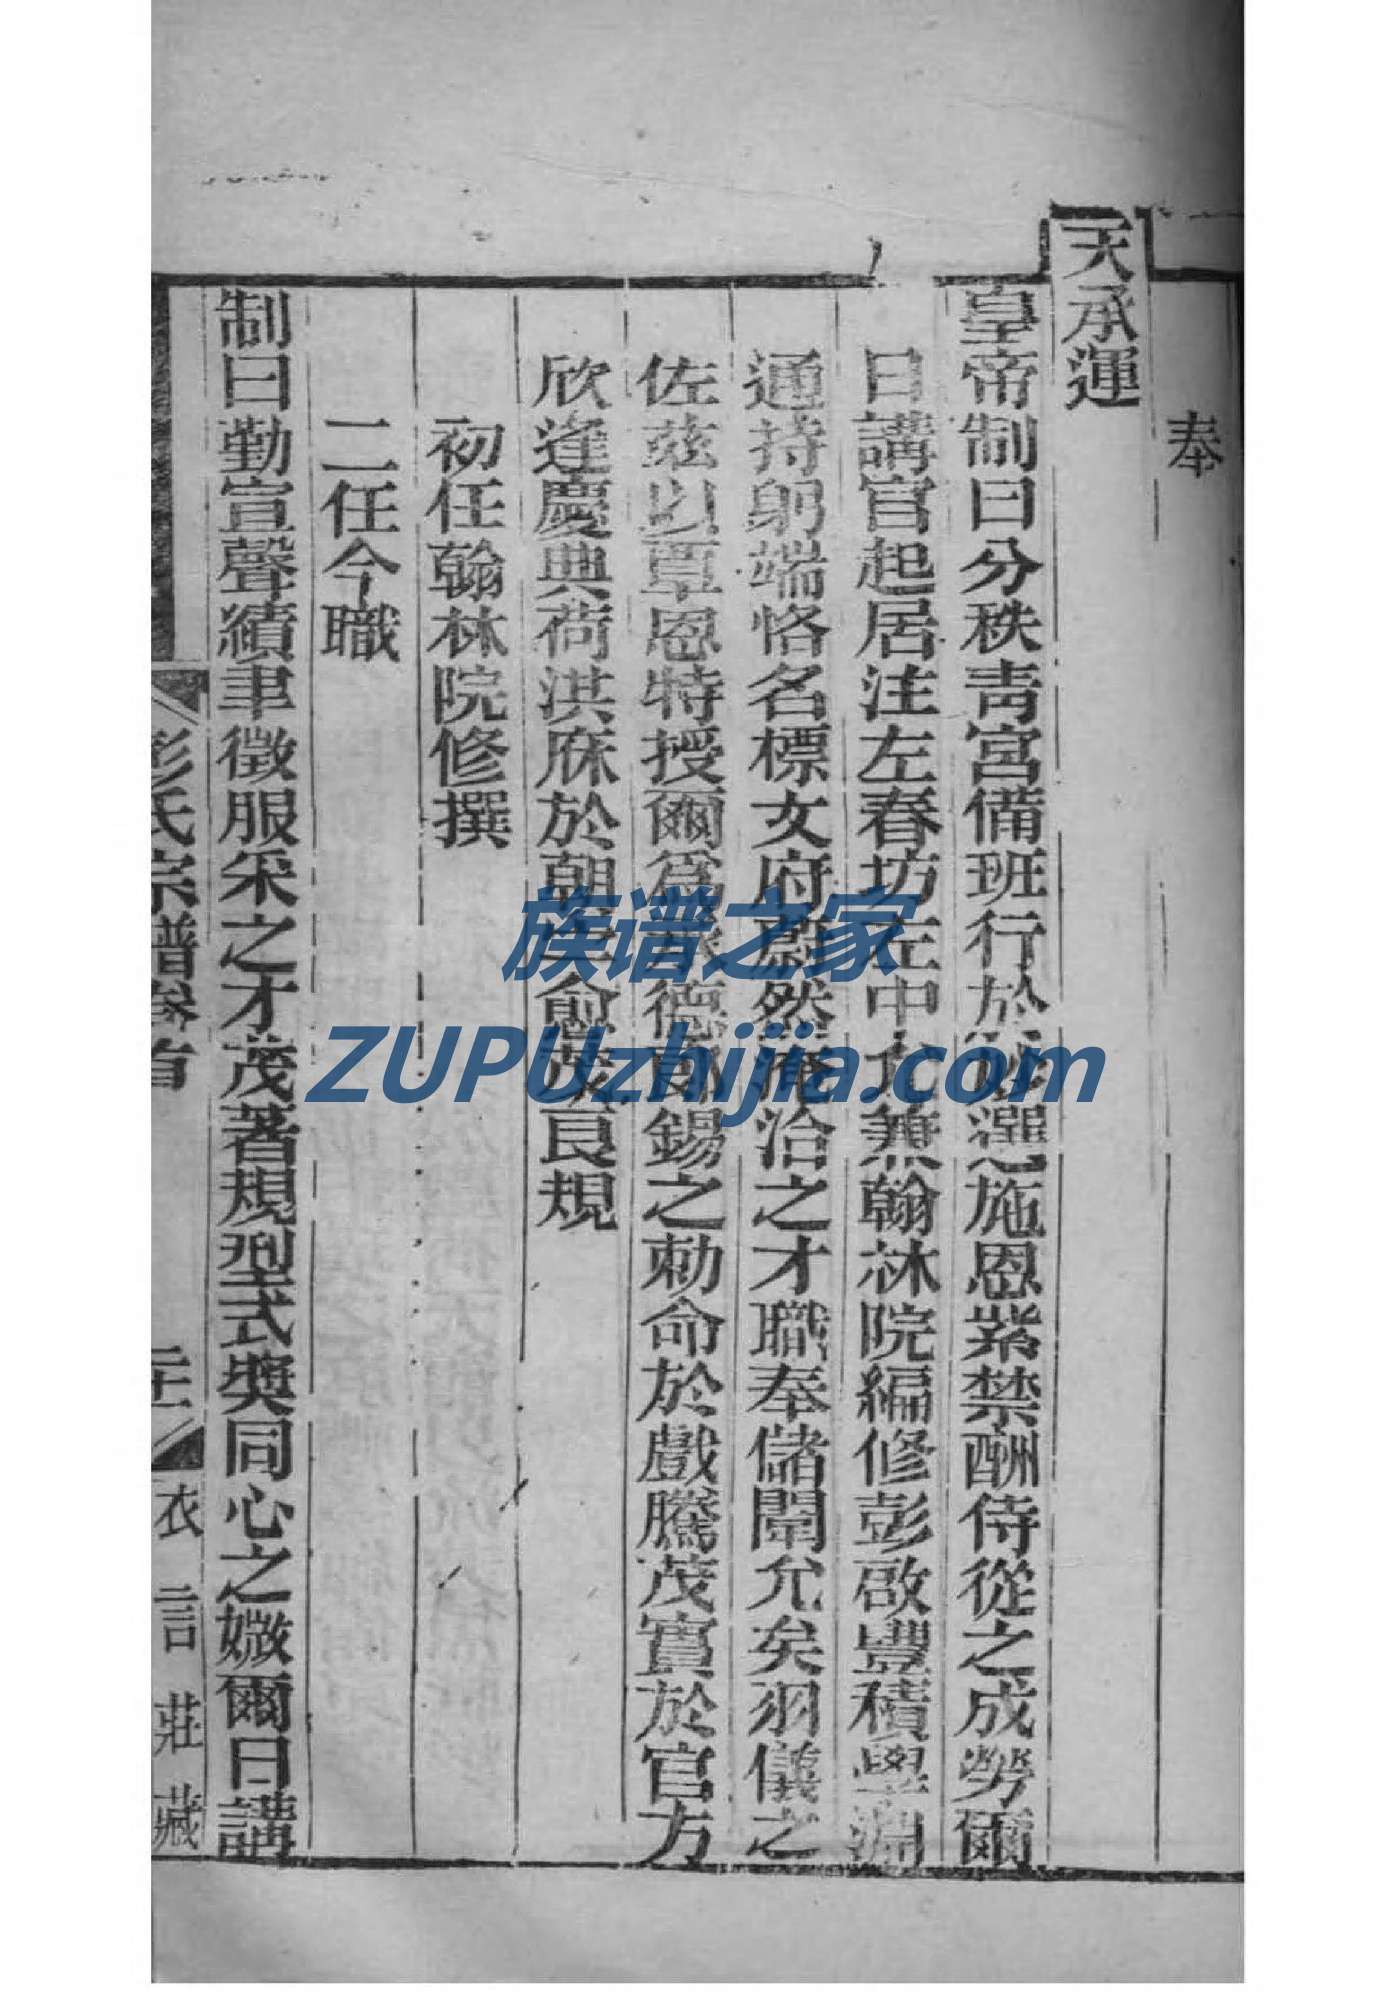 奉
天承運
皇帝制曰分秩靑宮備班行於妙選施恩紫禁酬侍從之成勞爾
日講官起居注左春坊左中允兼翰林院編修彭啟豐積學淵
通持躬端恪名標文府蔚然淹洽之才職奉儲闈允矣羽儀之
佐茲以覃恩特授爾爲承德郎錫之勅命於戲騰茂實於官方
欣逢慶典荷洪庥於朝 愈茂良規
初任翰林院修撰
二任今職
制曰勤宣聲績聿徵服采之才茂著規型式奬同心之媺爾日講
彭氏宗譜卷首
衣言莊藏
族谱之家
ZUPUzhijia.com